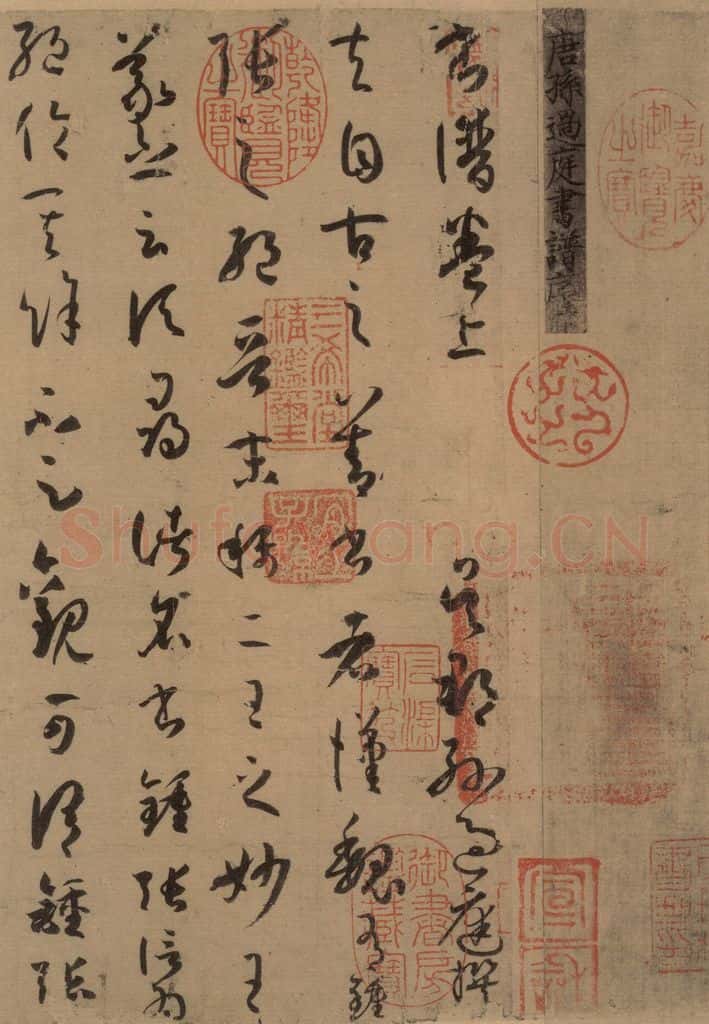 嘉慶御覽之寶
唐孫過庭書譜序
書譜卷上
吳郡孫過庭撰
夫自古之善書者漢魏有鍾
張之絕晉末稱二王之妙王
羲之云頃尋諸名書鍾張信為
絕倫其餘不足觀可謂鍾張
乾隆御覽之寶
三希堂精鑑璽
宜子孫
石渠寶笈
宣和